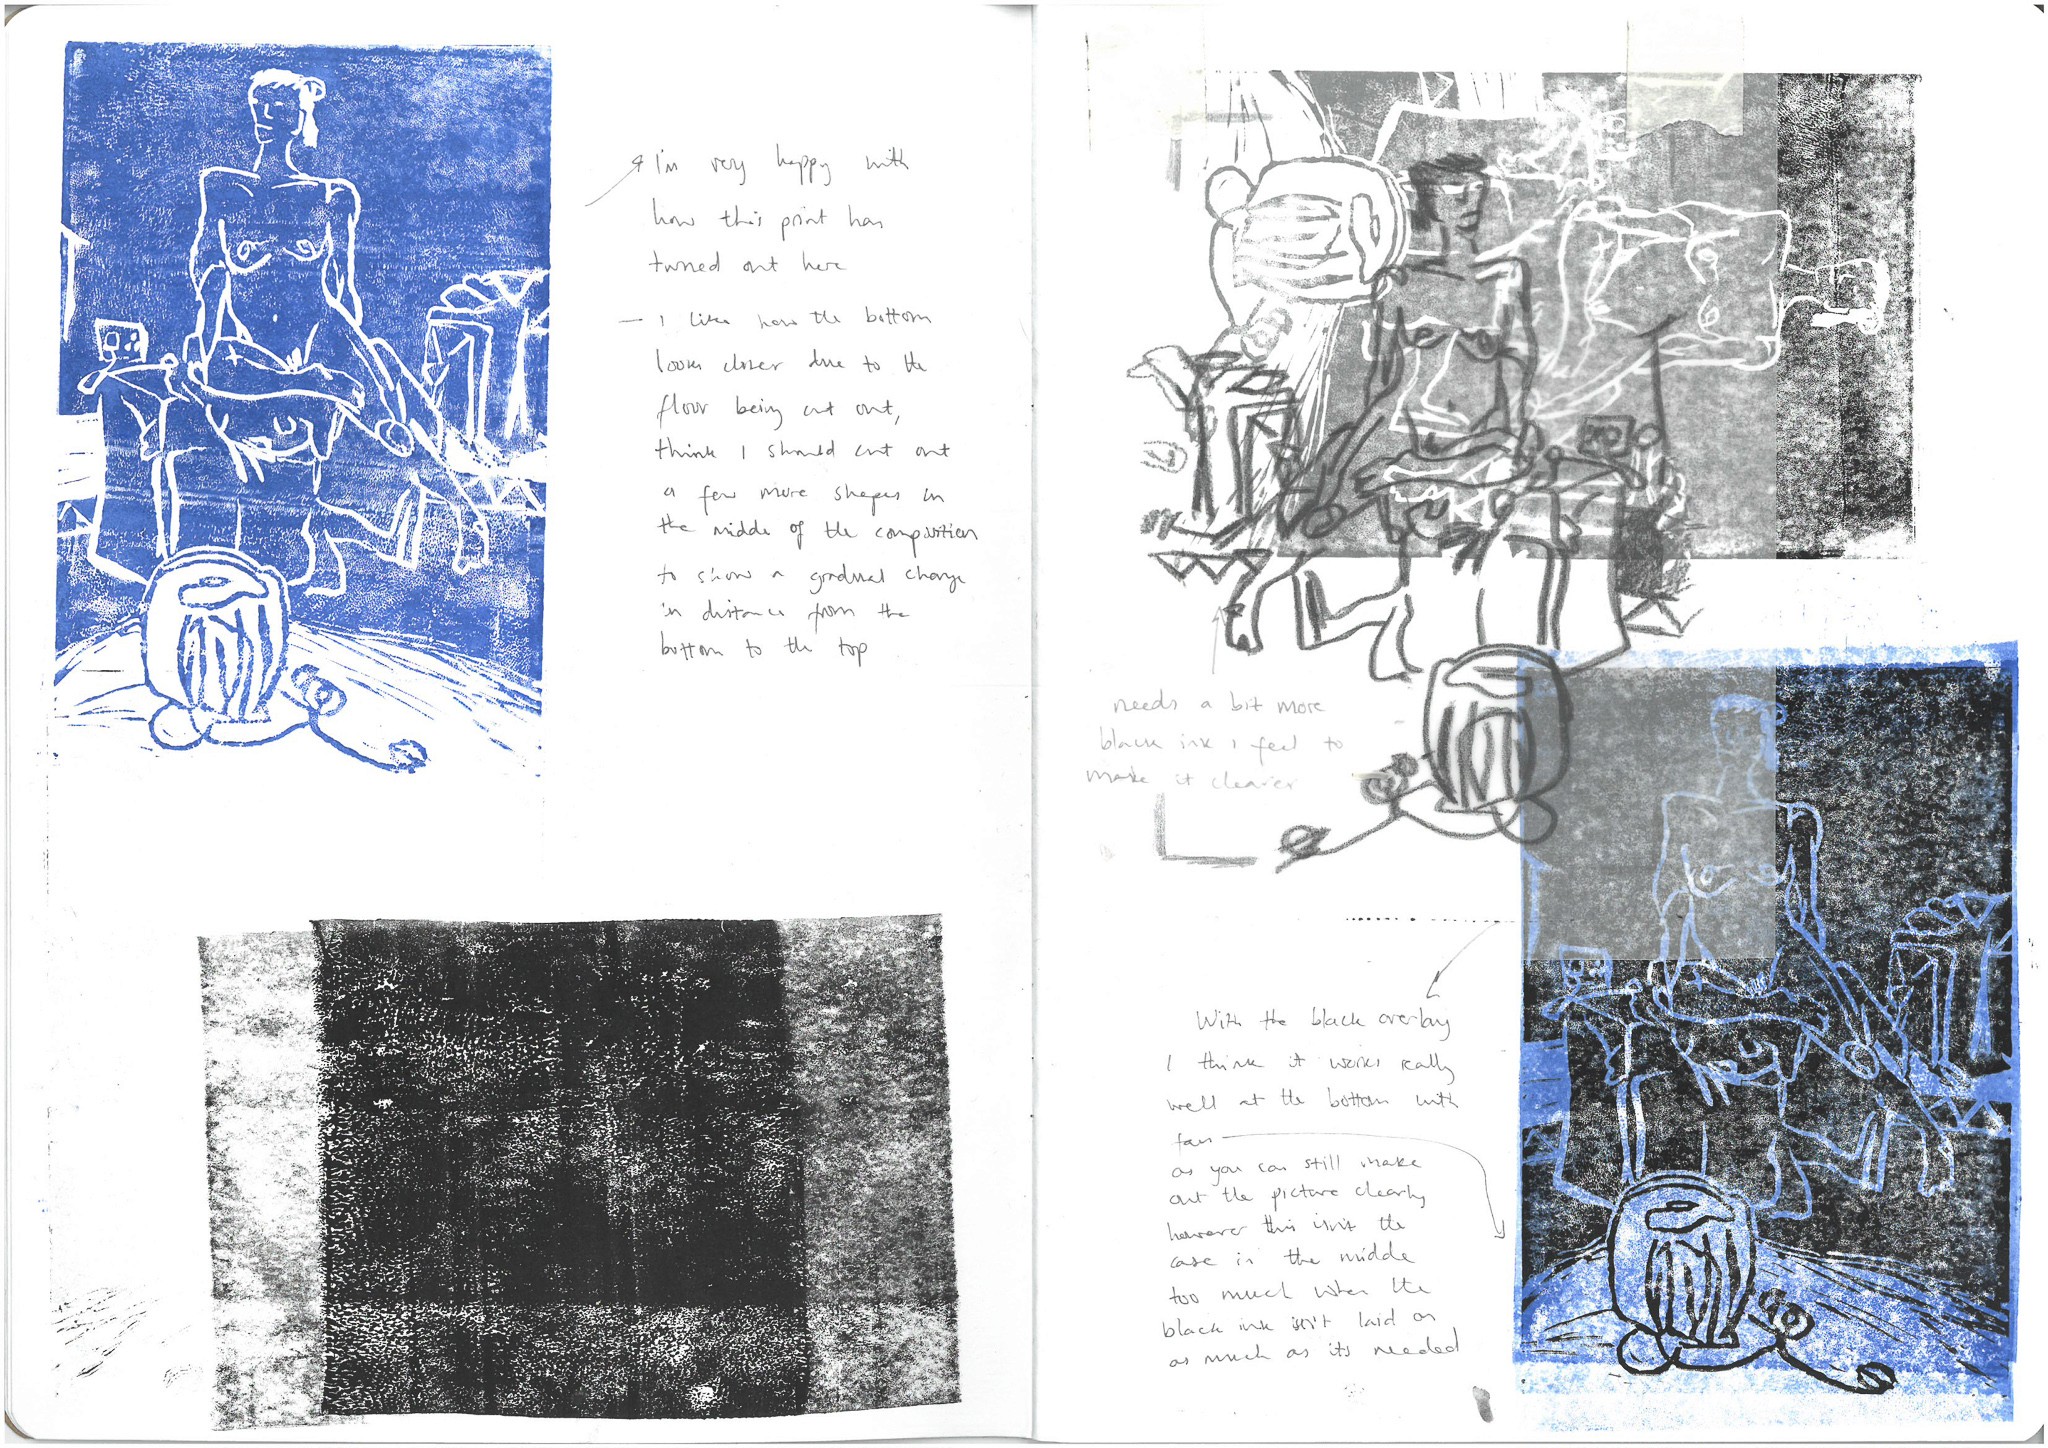 I'm very happy with
how this print has
turned out here
— I like how the bottom
looks closer due to the
floor being cut out,
think I should cut out
a few more shapes in
the middle of the composition
to show a gradual change
in distance from the
bottom to the top
needs a bit more
black ink I feel to
make it clearer
With the black overlay
I think it works really
well at the bottom with
fan
as you can still make
out the picture clearly
however this isn't the
case in the middle
too much when the
black ink isn't laid on
as much as its needed